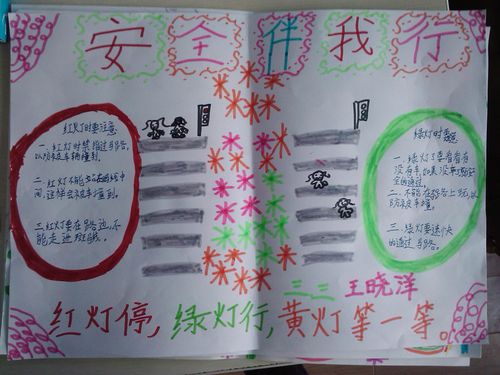 安全伴我行
红灯时要注意
一、红灯时禁止过马路,
以防被车辆撞到。
二、红灯不能站在马路中
间,这样会被车撞到。
三、红灯要在路边,不
能走进斑马线。
绿灯时要注意
一、绿灯要看看有
没有车,如果没车才能安
全的通过。
二、不能在马路上玩,以
防被车撞。
三、绿灯要速快的
通过马路。
二三 王晓洋
红灯停,绿灯行,黄灯等一等。